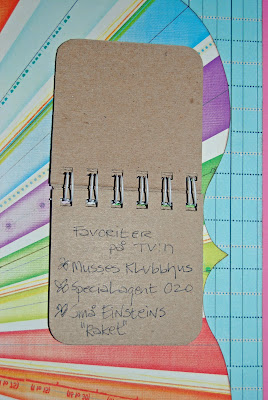 Favoriter
på TV:n
Musses Klubbhus
Specialagent OSO
små EINSTEINS
"Raket"